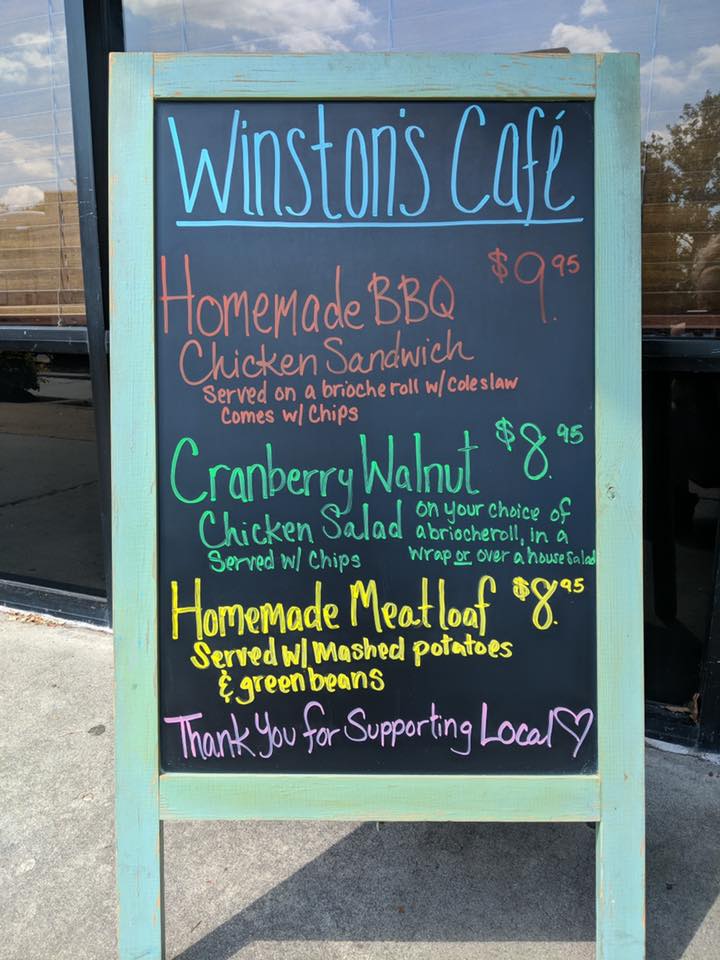 Winston's Café
Homemade BBQ $9.95
Chicken Sandwich
Served on a brioche roll w/ coleslaw
Comes w/ Chips
Cranberry Walnut $8.95
Chicken Salad on your choice of
a brioche roll, in a
Served w/ Chips wrap or over a house salad
Homemade Meatloaf $8.95
Served w/ Mashed potatoes
& green beans
Thank You for Supporting Local♡